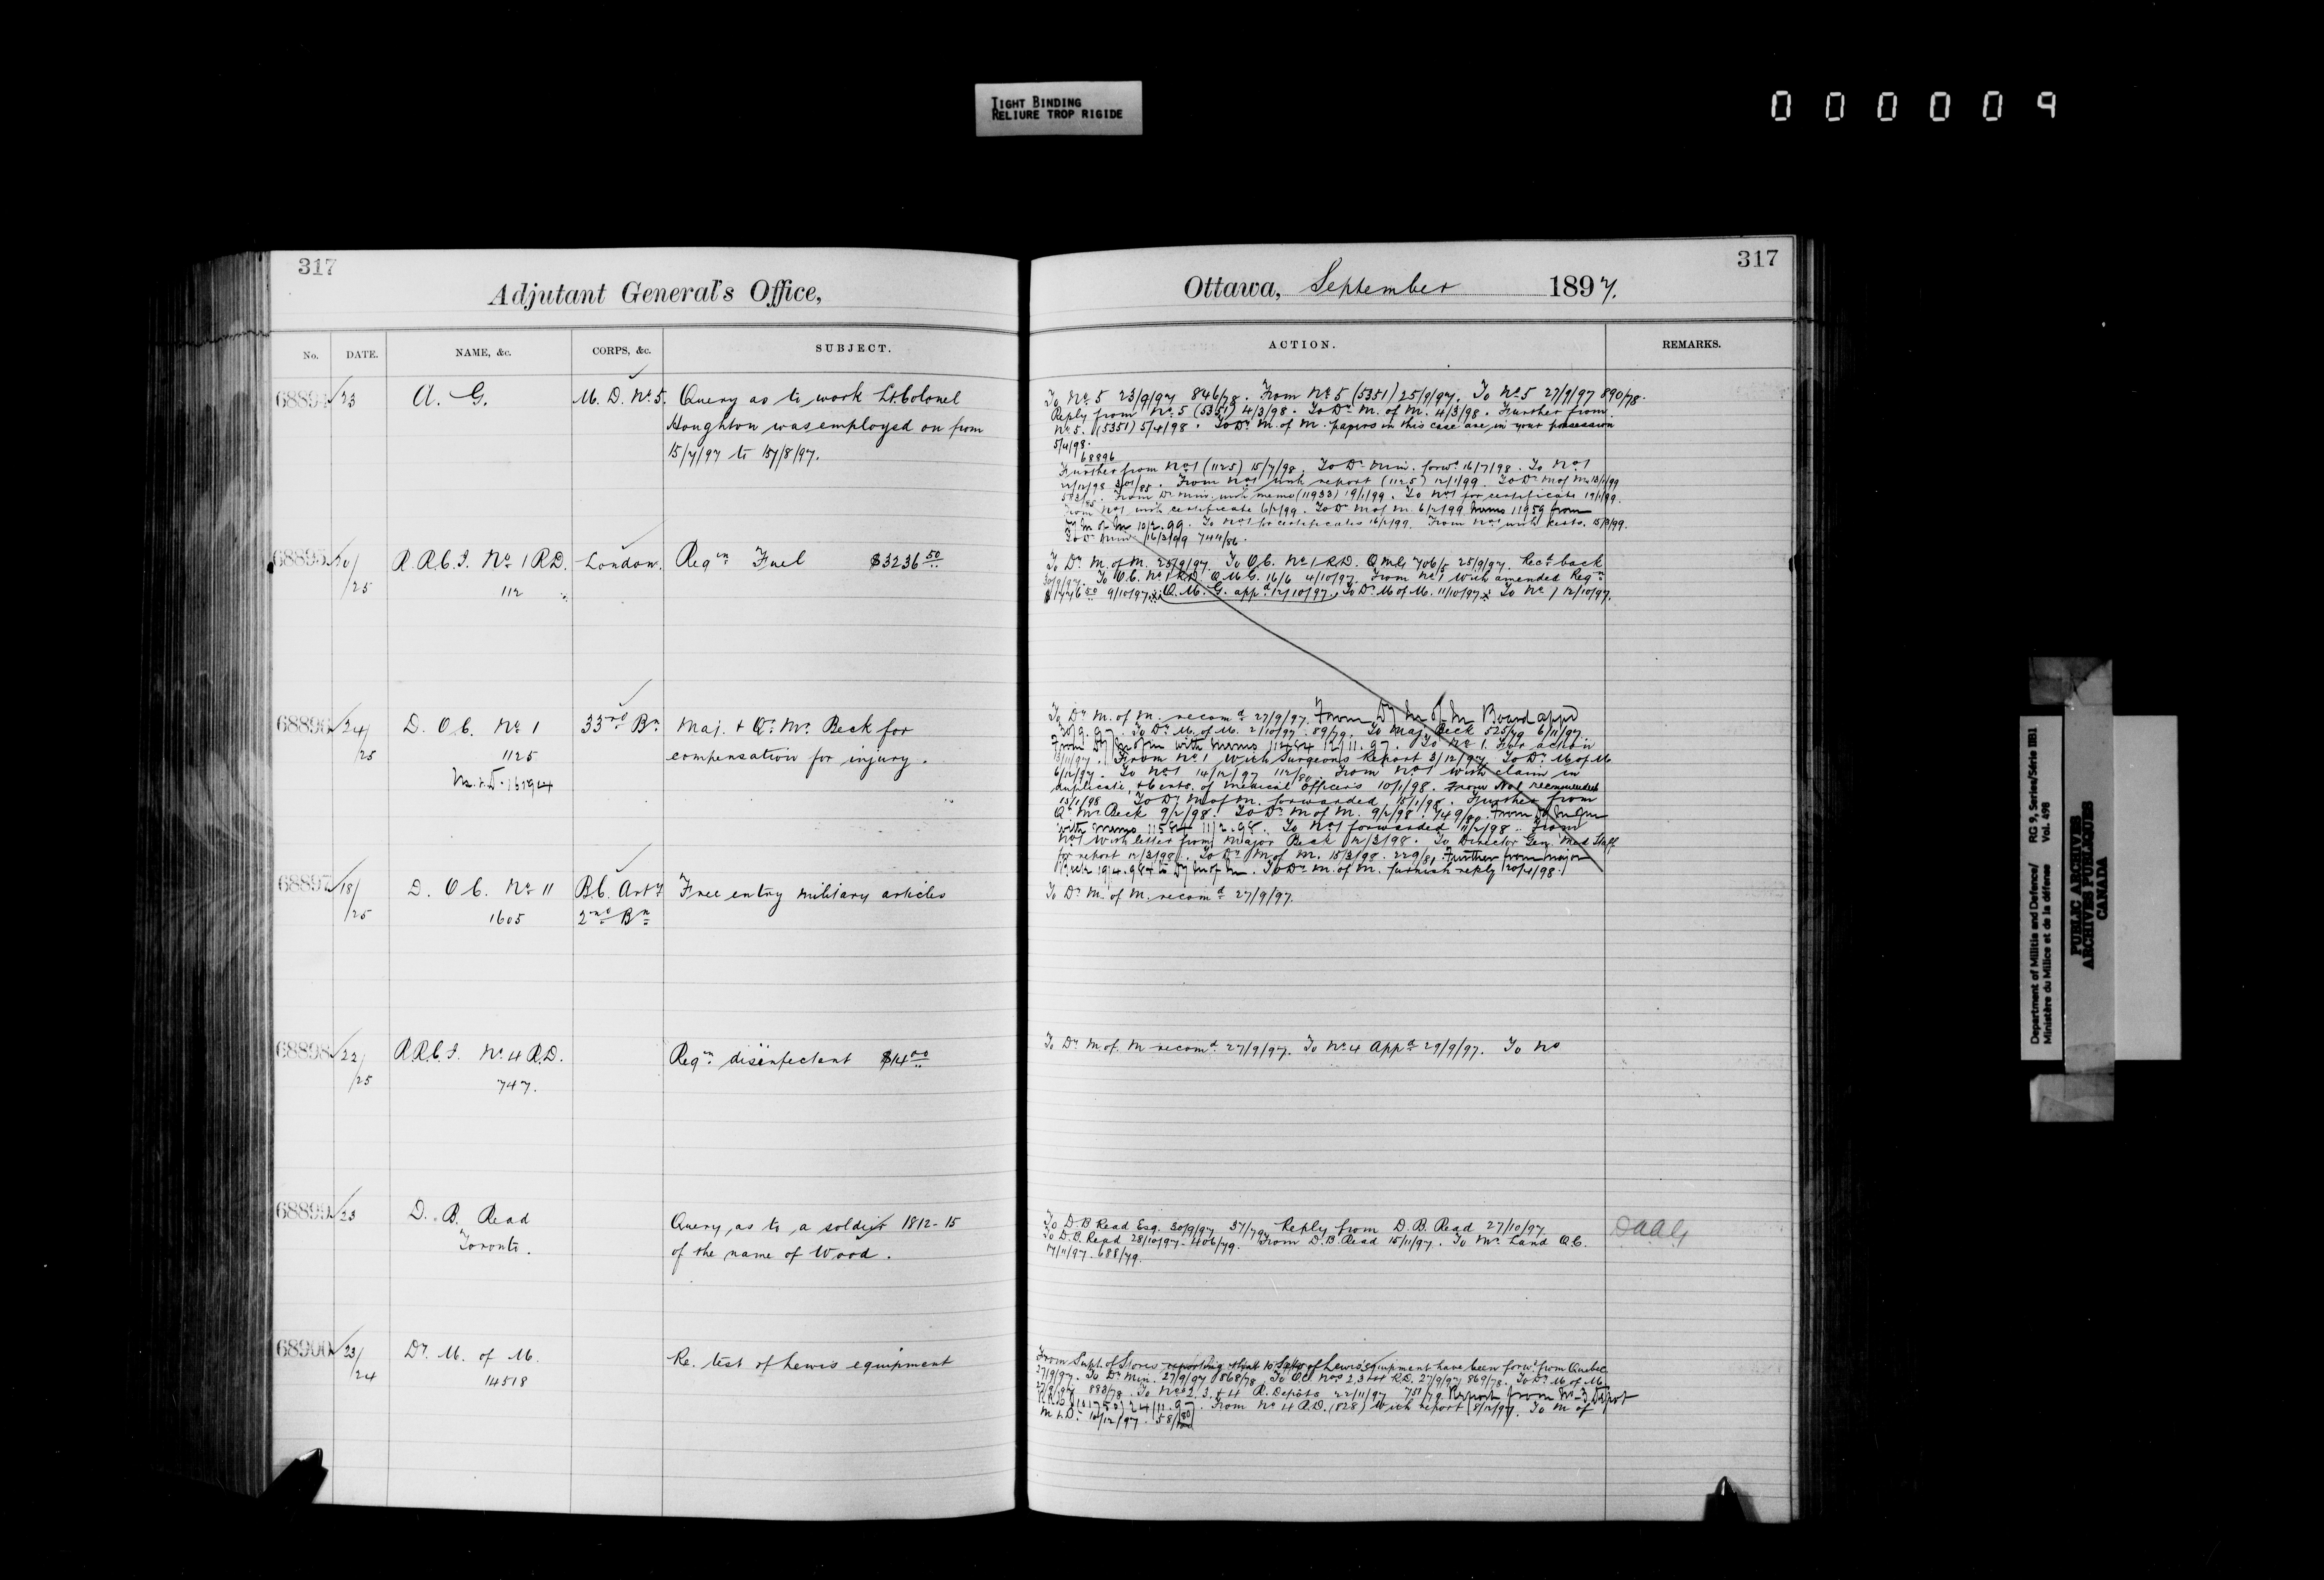 TIGHT BINDING
RELIURE TROP RIGIDE
000009
317
Adjutant General's Office,
No. DATE. NAME, &c. CORPS, &c. SUBJECT.
68894 23 A. G. M. D. No. 5. Query as to work Lt. Colonel
Houghton was employed on from
15/7/97 to 15/8/97.
68895 20/25 R.R.C.I. No. 1 R.D. London. Reqn Fuel $3236.50
112
68896 24/25 D. O. C. No 1 33rd Bn. Maj. + Qr. Mr. Beck for
1125 compensation for injury.
68897 18/25 D. O. C. No 11 B.C. Arty Free entry military articles
1605 2nd Bn
68898 22/25 R.R.C.I. No. 4 R.D. Reqn disinfectant $14.00
747.
68899 23 D. B. Read Query as to a soldier 1812-15
Toronto. of the name of Wood.
68900 23/24 Dr. M. of M. Re. test of Lewis equipment
14518
317
Ottawa, September 1897.
ACTION. REMARKS.
To No. 5 23/9/97 846/78. From No. 5 (5351) 25/9/97. To No. 5 27/9/97 890/78.
Reply from No. 5 (5351) 4/3/98. To Dr. M. of M. 4/3/98. Further from
No. 5. (5351) 5/4/98. To Dr. M. of M. papers in this case are in your possession
5/4/98.
68896
Further from No 1 (1125) 15/7/98. To Dr. Min. forwd 16/7/98. To No 1
22/12/98 From No 1 with report (1125) 12/1/99. To Dr M of M 13/1/99
From Dr Min. with memo (11933) 19/1/99. To No 1 for certificate 19/1/99.
From No 1 with certificate 6/2/99. To Dr M of M. 6/2/99 Memo 11959 from
Dy M of M 10/2.99. To No 1 for certificates 16/2/99. From No 1 with certs. 15/3/99.
To Dr Min 16/3/99 744/86.
To Dr. M. of M. 25/9/97. To O.C. No. 1 R.D. Q.M.G. 706/5 25/9/97. Recd back
30/9/97. To O.C. No. 1 R.D. Q.M.G. 16/6 4/10/97. From No. 1 with amended Reqn
9/10/97. Q. M. G. appd 12/10/97. To Dr. M of M. 11/10/97. To No. 1 12/10/97.
To Dr. M. of M. recomd 27/9/97. From Dy M of M Board appd
30/9.97. To Dr. M. of M. 2/10/97. 89/79. To Maj. Beck 525/79 6/11/97.
From Dy M of M with memo 11484 12/11.97. To No 1. For action
13/11/97. From No. 1 with Surgeons Report 3/12/97. To Dr. M of M
6/12/97. To No 1 14/12/97 112/80. From No 1 with claim in
duplicate, of Medical Officers 10/1/98. From No 1 recommended
15/1/98 To Dr. M of M. forwarded 15/1/98. Further from
Qr. Mr. Beck 9/2/98. To Dr. M of M. 9/2/98. 749/80. From Dy M of M
with memo 11584 11/2.98. To No 1 forwarded 11/2/98. From
No 1 with letter from Major Beck 12/3/98. To Director Gen. Med. Staff
for report 12/3/98. To Dr. M of M. 15/3/98. 229/81 Further from Major
Beck 19/4.98 to Dy M of M. To Dr. M. of M. furnish reply 20/4/98.
To Dr. M. of M. recomd 27/9/97.
To Dr. M of. M recomd. 27/9/97. To No. 4 Appd 29/9/97. To No
To D B Read Esq. 30/9/97 37/79. Reply from D. B. Read 27/10/97 DAAG
To D. B. Read 28/10/97. 406/79. From D. B. Read 15/11/97. To Mr. Land Q.C.
17/11/97. 688/79.
From Supt. of Stores reporting that 10 Setts of Lewis equipment have been forwd from Quebec
27/9/97. To Dr. Min. 27/9/97 868/78. To OC Nos 2, 3 + 4 R.D. 27/9/97 869/78. To Dr. M. of M.
27/9/97 883/78. To Nos 2. 3. + 4 R. Depots 22/11/97 751/79 Report from No 3 Depot
24/11.97. From No 4 R.D. (828) with report 8/12/97. To M of
M + D. 10/12/97. 58/80
Department of Militia and Defence/ RG 9, Series/Série IIB1
Ministère du Milice et de la défense Vol. 498
PUBLIC ARCHIVES
ARCHIVES PUBLIQUES
CANADA